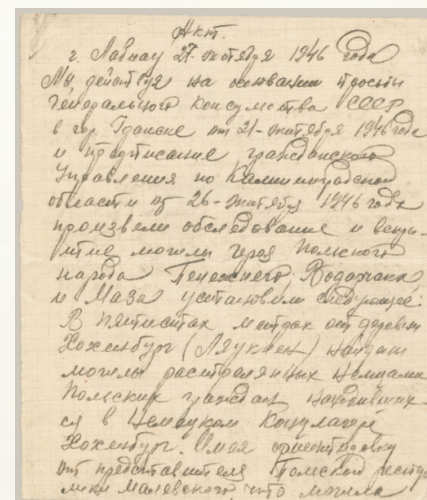 Акт.
г. Лабиау 27. октября 1946 года
Мы, действуя на основании просьбы
Генерального консульства СССР
в гор. Гданске от 21-октября 1946 года
и предписание гражданского
Управления по Калининградской
области от 26-октября 1946 года
произвели обследование и вскры-
тие могилы героя Польского
народа Пененжнего, Водолчака
и Маза установили следующее:
В пятистах метрах от деревни
Хохенбург (Лаукнен) найдены
могилы расстрелянных немцами
Польских граждан находивших-
ся в Немецком Концлагере
Хохенбург. Имея ориентировку
от представителя Польской респуб-
лики Малевского, что могила